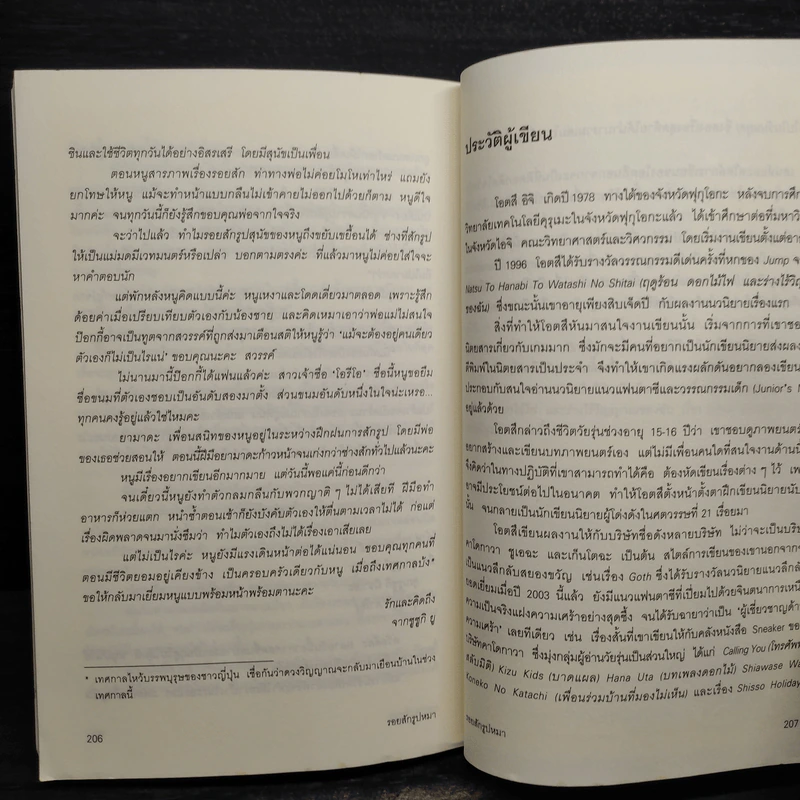 ซินและใช้ชีวิตทุกวันได้อย่างอิสรเสรี โดยมีสุนัขเป็นเพื่อน
ตอนหนูสารภาพเรื่องรอยสัก ท่าทางพ่อไม่ค่อยโมโหเท่าไหร่ แถมยัง
ยกโทษให้หนู แม้จะทำหน้าแบบกลืนไม่เข้าคายไม่ออกไปด้วยก็ตาม หนูดีใจ
มากค่ะ จนทุกวันนี้ก็ยังรู้สึกขอบคุณพ่อจากใจจริง
จะว่าไปแล้ว ทำไมรอยสักรูปสุนัขของหนูถึงขยับเขยื้อนได้ ช่างที่สักรูป
ให้เป็นแม่มดมีเวทมนตร์หรือเปล่า บอกตามตรงค่ะ ที่แล้วมาหนูไม่ค่อยใส่ใจจะ
หาคำตอบนัก
แต่พักหลังหนูคิดแบบนี้ค่ะ หนูเหงาและโดดเดี่ยวมาตลอด เพราะรู้สึก
ด้อยค่าเมื่อเปรียบเทียบตัวเองกับน้องชาย และคิดเหมาเอาว่าพ่อแม่ไม่สนใจ
ป๊อกกี้อาจเป็นทูตจากสวรรค์ที่ถูกส่งมาเตือนสติให้หนูรู้ว่า 'แม้จะต้องอยู่คนเดียว
ตัวเองก็ไม่เป็นไรแน่' ขอบคุณนะคะ สวรรค์
ไม่นานมานี้ป๊อกกี้ได้แฟนแล้วค่ะ สาวเจ้าชื่อ 'โอรีโอ' ชื่อนี้หนูขอยืม
ชื่อขนมที่ตัวเองชอบเป็นอันดับสองมาตั้ง ส่วนขนมอันดับหนึ่งในใจน่ะเหรอ...
ทุกคนคงรู้อยู่แล้วใช่ไหมคะ
ยามาดะ เพื่อนสนิทของหนูอยู่ในระหว่างฝึกฝนการสักรูป โดยมีพ่อ
ของเธอช่วยสอนให้ ตอนนี้ฝีมือยามาดะก้าวหน้าจนเก่งกว่าช่างสักทั่วไปแล้วนะคะ
หนูมีเรื่องอยากเขียนอีกมากมาย แต่วันนี้พอแค่นี้ก่อนดีกว่า
จนเดี๋ยวนี้หนูยังทำตัวกลมกลืนกับพวกญาติ ๆ ไม่ได้เสียที ฝีมือทำ
อาหารก็ห่วยแตก หนำซ้ำตอนเช้าก็ยังบังคับตัวเองให้ตื่นตามเวลาไม่ได้ ก่อแต่
เรื่องผิดพลาดจนมานั่งซึมว่า ทำไมตัวเองถึงไม่ได้เรื่องเอาเสียเลย
แต่ไม่เป็นไรค่ะ หนูยังมีแรงเดินหน้าต่อได้แน่นอน ขอบคุณทุกคนที่
ตอนมีชีวิตยอมอยู่เคียงข้าง เป็นครอบครัวเดียวกับหนู เมื่อถึงเทศกาลบัง*
ขอให้กลับมาเยี่ยมหนูแบบพร้อมหน้าพร้อมตานะคะ
รักและคิดถึง
จากซูซูกิ ยู
* เทศกาลไหว้บรรพบุรุษของชาวญี่ปุ่น เชื่อกันว่าดวงวิญญาณจะกลับมาเยือนบ้านในช่วง
เทศกาลนี้
รอยสักรูปหมา
206
ประวัติผู้เขียน
โอตสึ อิจิ เกิดปี 1978 ทางใต้ของจังหวัดฟุกุโอกะ หลังจบการศึก
วิทยาลัยเทคโนโลยีคุรุเมะในจังหวัดฟุกุโอกะแล้ว ได้เข้าศึกษาต่อที่มหาวิ
ในจังหวัดไอจิ คณะวิทยาศาสตร์และวิศวกรรม โดยเริ่มงานเขียนตั้งแต่อา
ปี 1996 โอตสึได้รับรางวัลวรรณกรรมดีเด่นครั้งที่หกของ Jump จ
Natsu To Hanabi To Watashi No Shitai (ฤดูร้อน ดอกไม้ไฟ และร่างไร้วิญ
ของฉัน) ซึ่งขณะนั้นเขาอายุเพียงสิบเจ็ดปี กับผลงานนวนิยายเรื่องแรก
สิ่งที่ทำให้โอตสึหันมาสนใจงานเขียนนั้น เริ่มจากการที่เขาชอ
นิตยสารเกี่ยวกับเกมมาก ซึ่งมักจะมีคนที่อยากเป็นนักเขียนนิยายส่งผลง
ตีพิมพ์ในนิตยสารเป็นประจำ จึงทำให้เขาเกิดแรงผลักดันอยากลองเขียน
ประกอบกับสนใจอ่านนวนิยายแนวแฟนตาซีและวรรณกรรมเด็ก (Junior's N
อยู่แล้วด้วย
โอตสึกล่าวถึงชีวิตวัยรุ่นช่วงอายุ 15-16 ปีว่า เขาชอบดูภาพยนตร์
อยากสร้างและเขียนบทภาพยนตร์เอง แต่ไม่มีเพื่อนคนใดที่สนใจงานด้านนี้
จึงคิดว่าในทางปฏิบัติที่เขาสามารถทำได้คือ ต้องหัดเขียนเรื่องต่าง ๆ ไว้ เพ
อาจมีประโยชน์ต่อไปในอนาคต ทำให้โอตสึตั้งหน้าตั้งตาฝึกเขียนนิยายนับ
นั้น จนกลายเป็นนักเขียนนิยายผู้โด่งดังในศตวรรษที่ 21 เรื่อยมา
โอตสึเขียนผลงานให้กับบริษัทชื่อดังหลายบริษัท ไม่ว่าจะเป็นบริษ
คาโดกาวา ชูเอฉะ และเก็นโตฉะ เป็นต้น สไตล์การเขียนของเขานอกจาก
เป็นแนวลึกลับสยองขวัญ เช่นเรื่อง Goth ซึ่งได้รับรางวัลนวนิยายแนวลึกลั
ยอดเยี่ยมเมื่อปี 2003 นี้แล้ว ยังมีแนวแฟนตาซีที่เปี่ยมไปด้วยจินตนาการเหนื
ความเป็นจริงแฝงความเศร้าอย่างสุดซึ้ง จนได้รับฉายาว่าเป็น 'ผู้เชี่ยวชาญด้า
ความเศร้า' เลยทีเดียว เช่น เรื่องสั้นที่เขาเขียนให้กับคลังหนังสือ Sneaker ขอ
บริษัทคาโดกาวา ซึ่งมุ่งกลุ่มผู้อ่านวัยรุ่นเป็นส่วนใหญ่ ได้แก่ Calling You (โทรศัพท์
กลับมิติ) Kizu Kids (บาดแผล) Hana Uta (บทเพลงดอกไม้) Shiawase Wa
Koneko No Katachi (เพื่อนร่วมบ้านที่มองไม่เห็น) และเรื่อง Shisso Holiday
รอยสักรูปหมา
207